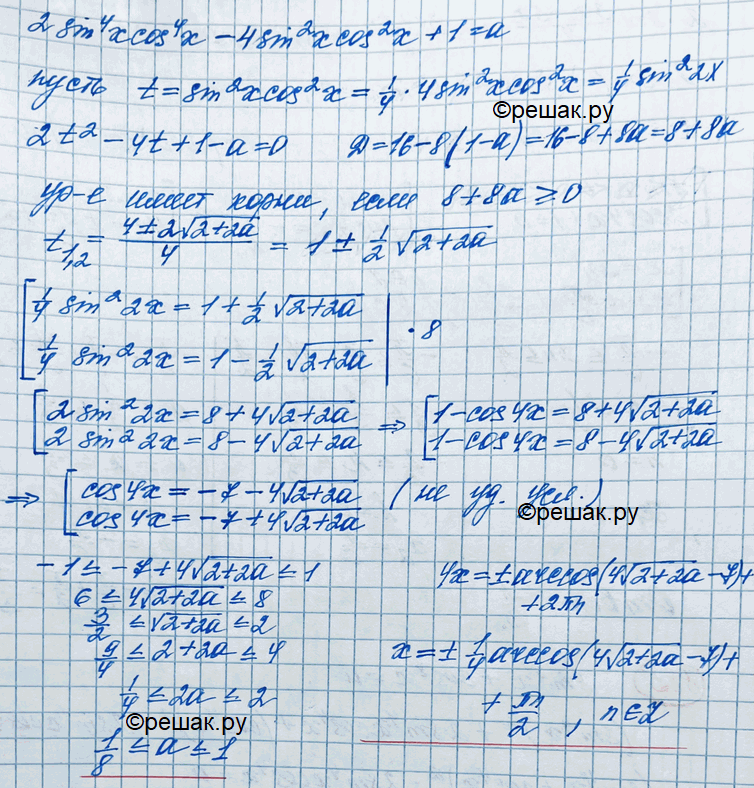 2 sin⁴x cos⁴x − 4 sin²x cos²x + 1 = a
пусть t = sin²x cos²x = 1/4 · 4 sin²x cos²x = 1/4 sin²2x
©решак.ру
2t² − 4t + 1 − a = 0 D = 16 − 8(1 − a) = 16 − 8 + 8a = 8 + 8a
ур-е имеет корни, если 8 + 8a ≥ 0
t₁,₂ = (4 ± 2√(2+2a))/4 = 1 ± 1/2 √(2+2a)
[ 1/4 sin²2x = 1 + 1/2 √(2+2a) |
1/4 sin²2x = 1 − 1/2 √(2+2a) | · 8
[ 2 sin²2x = 8 + 4√(2+2a) ⇒ [ 1 − cos4x = 8 + 4√(2+2a)
2 sin²2x = 8 − 4√(2+2a) 1 − cos4x = 8 − 4√(2+2a)
⇒ [ cos4x = −7 − 4√(2+2a) (не уд. усл.)
cos4x = −7 + 4√(2+2a)
©решак.ру
−1 ≤ −7 + 4√(2+2a) ≤ 1
6 ≤ 4√(2+2a) ≤ 8
3/2 ≤ √(2+2a) ≤ 2
9/4 ≤ 2 + 2a ≤ 4
1/4 ≤ 2a ≤ 2
©решак.ру
1/8 ≤ a ≤ 1
4x = ± arccos(4√(2+2a) − 7) +
+ 2πn
x = ± 1/4 arccos(4√(2+2a) − 7) +
+ πn/2 , n ∈ Z